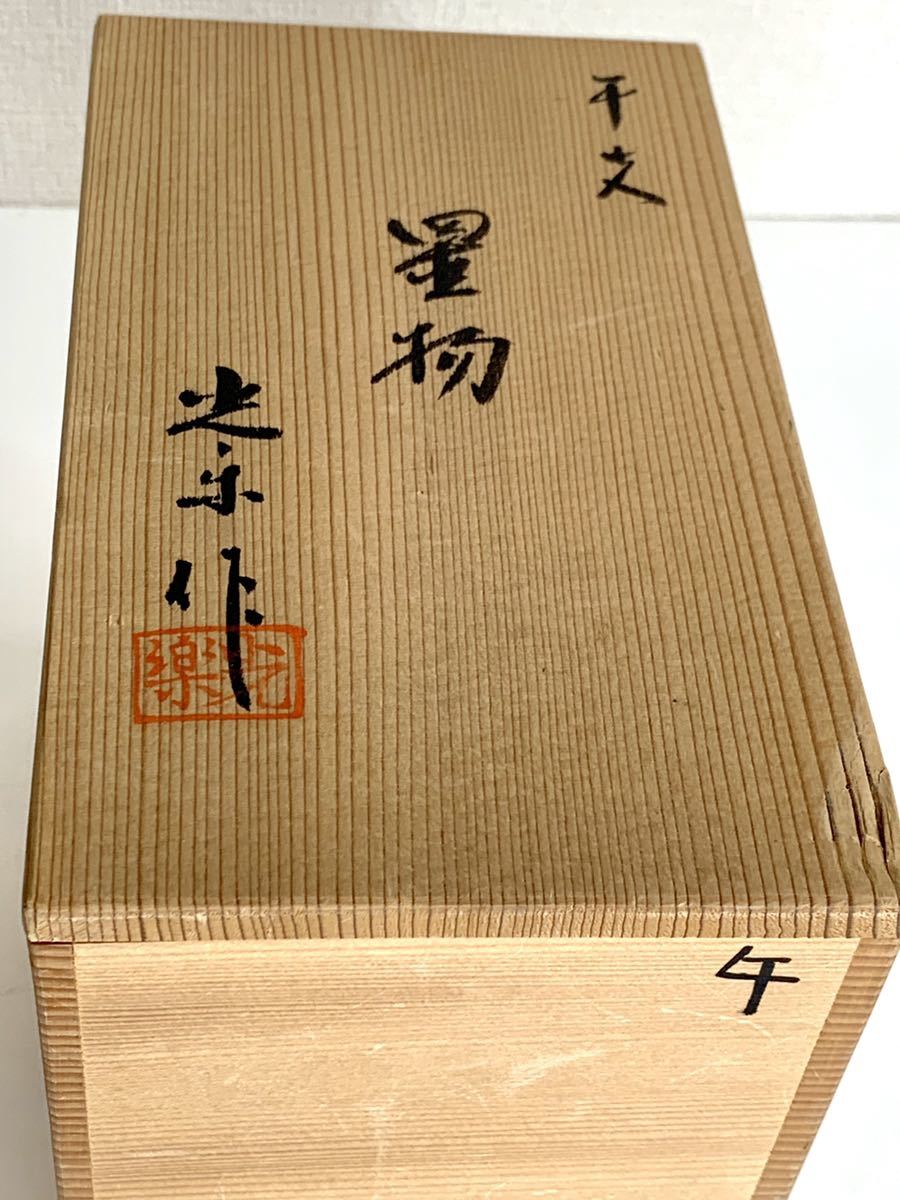 干支
置物
光楽作
光楽
午